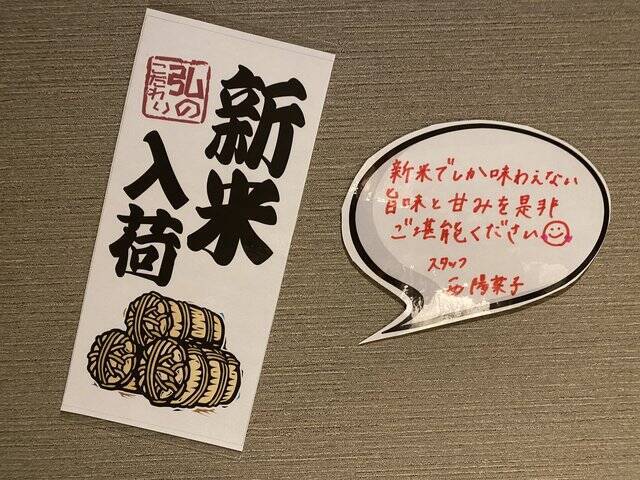 弘の
こだわり
新米
入荷
新米でしか味わえない
旨味と甘みを是非
ご堪能ください
スタッフ
西 陽菜子